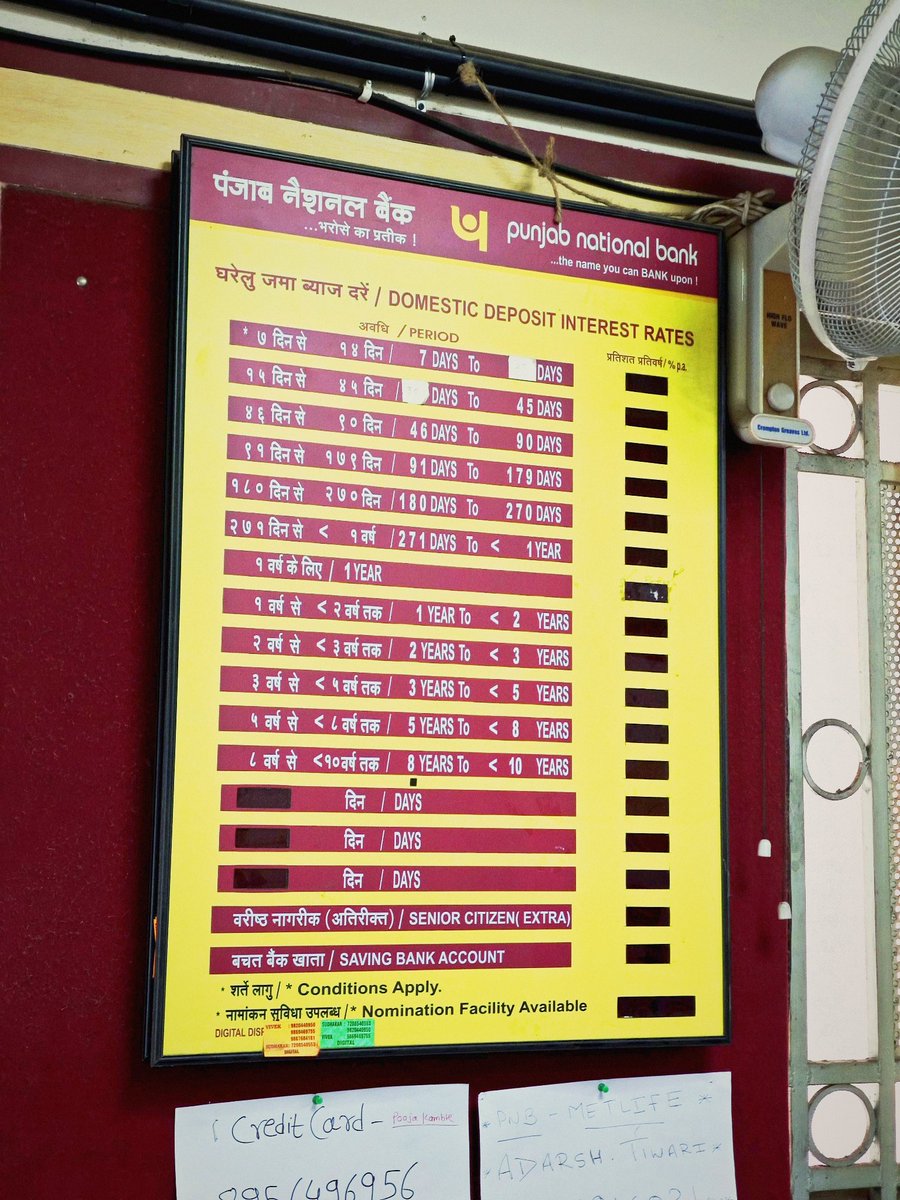 पंजाब नैशनल बैंक
...भरोसे का प्रतीक !
punjab national bank
...the name you can BANK upon !
घरेलु जमा ब्याज दरें / DOMESTIC DEPOSIT INTEREST RATES
अवधि / PERIOD
प्रतिशत प्रतिवर्ष/ % p.a.
* ७ दिन से १४ दिन / 7 DAYS To DAYS
१५ दिन से ४५ दिन / DAYS To 45 DAYS
४६ दिन से ९० दिन / 46 DAYS To 90 DAYS
९१ दिन से १७९ दिन / 91 DAYS To 179 DAYS
१८० दिन से २७० दिन / 180 DAYS To 270 DAYS
२७१ दिन से < १ वर्ष / 271 DAYS To < 1 YEAR
१ वर्ष के लिए / 1 YEAR
१ वर्ष से < २ वर्ष तक / 1 YEAR To < 2 YEARS
२ वर्ष से < ३ वर्ष तक / 2 YEARS To < 3 YEARS
३ वर्ष से < ५ वर्ष तक / 3 YEARS To < 5 YEARS
५ वर्ष से < ८ वर्ष तक / 5 YEARS To < 8 YEARS
८ वर्ष से <१० वर्ष तक / 8 YEARS To < 10 YEARS
दिन / DAYS
दिन / DAYS
दिन / DAYS
वरीष्ठ नागरीक (अतिरीक्त) / SENIOR CITIZEN( EXTRA)
बचत बैंक खाता / SAVING BANK ACCOUNT
* शर्ते लागु / * Conditions Apply.
* नामांकन सुविधा उपलब्ध /* Nomination Facility Available
DIGITAL
VIVEK
SUDHAKAR
DIGITAL
VIVEK
DIGITAL
HIGH FLO
WAVE
Crompton Greaves Ltd.
Credit Card - Pooja Kamble
* PNB - METLIFE *
* ADARSH. TIWARI *